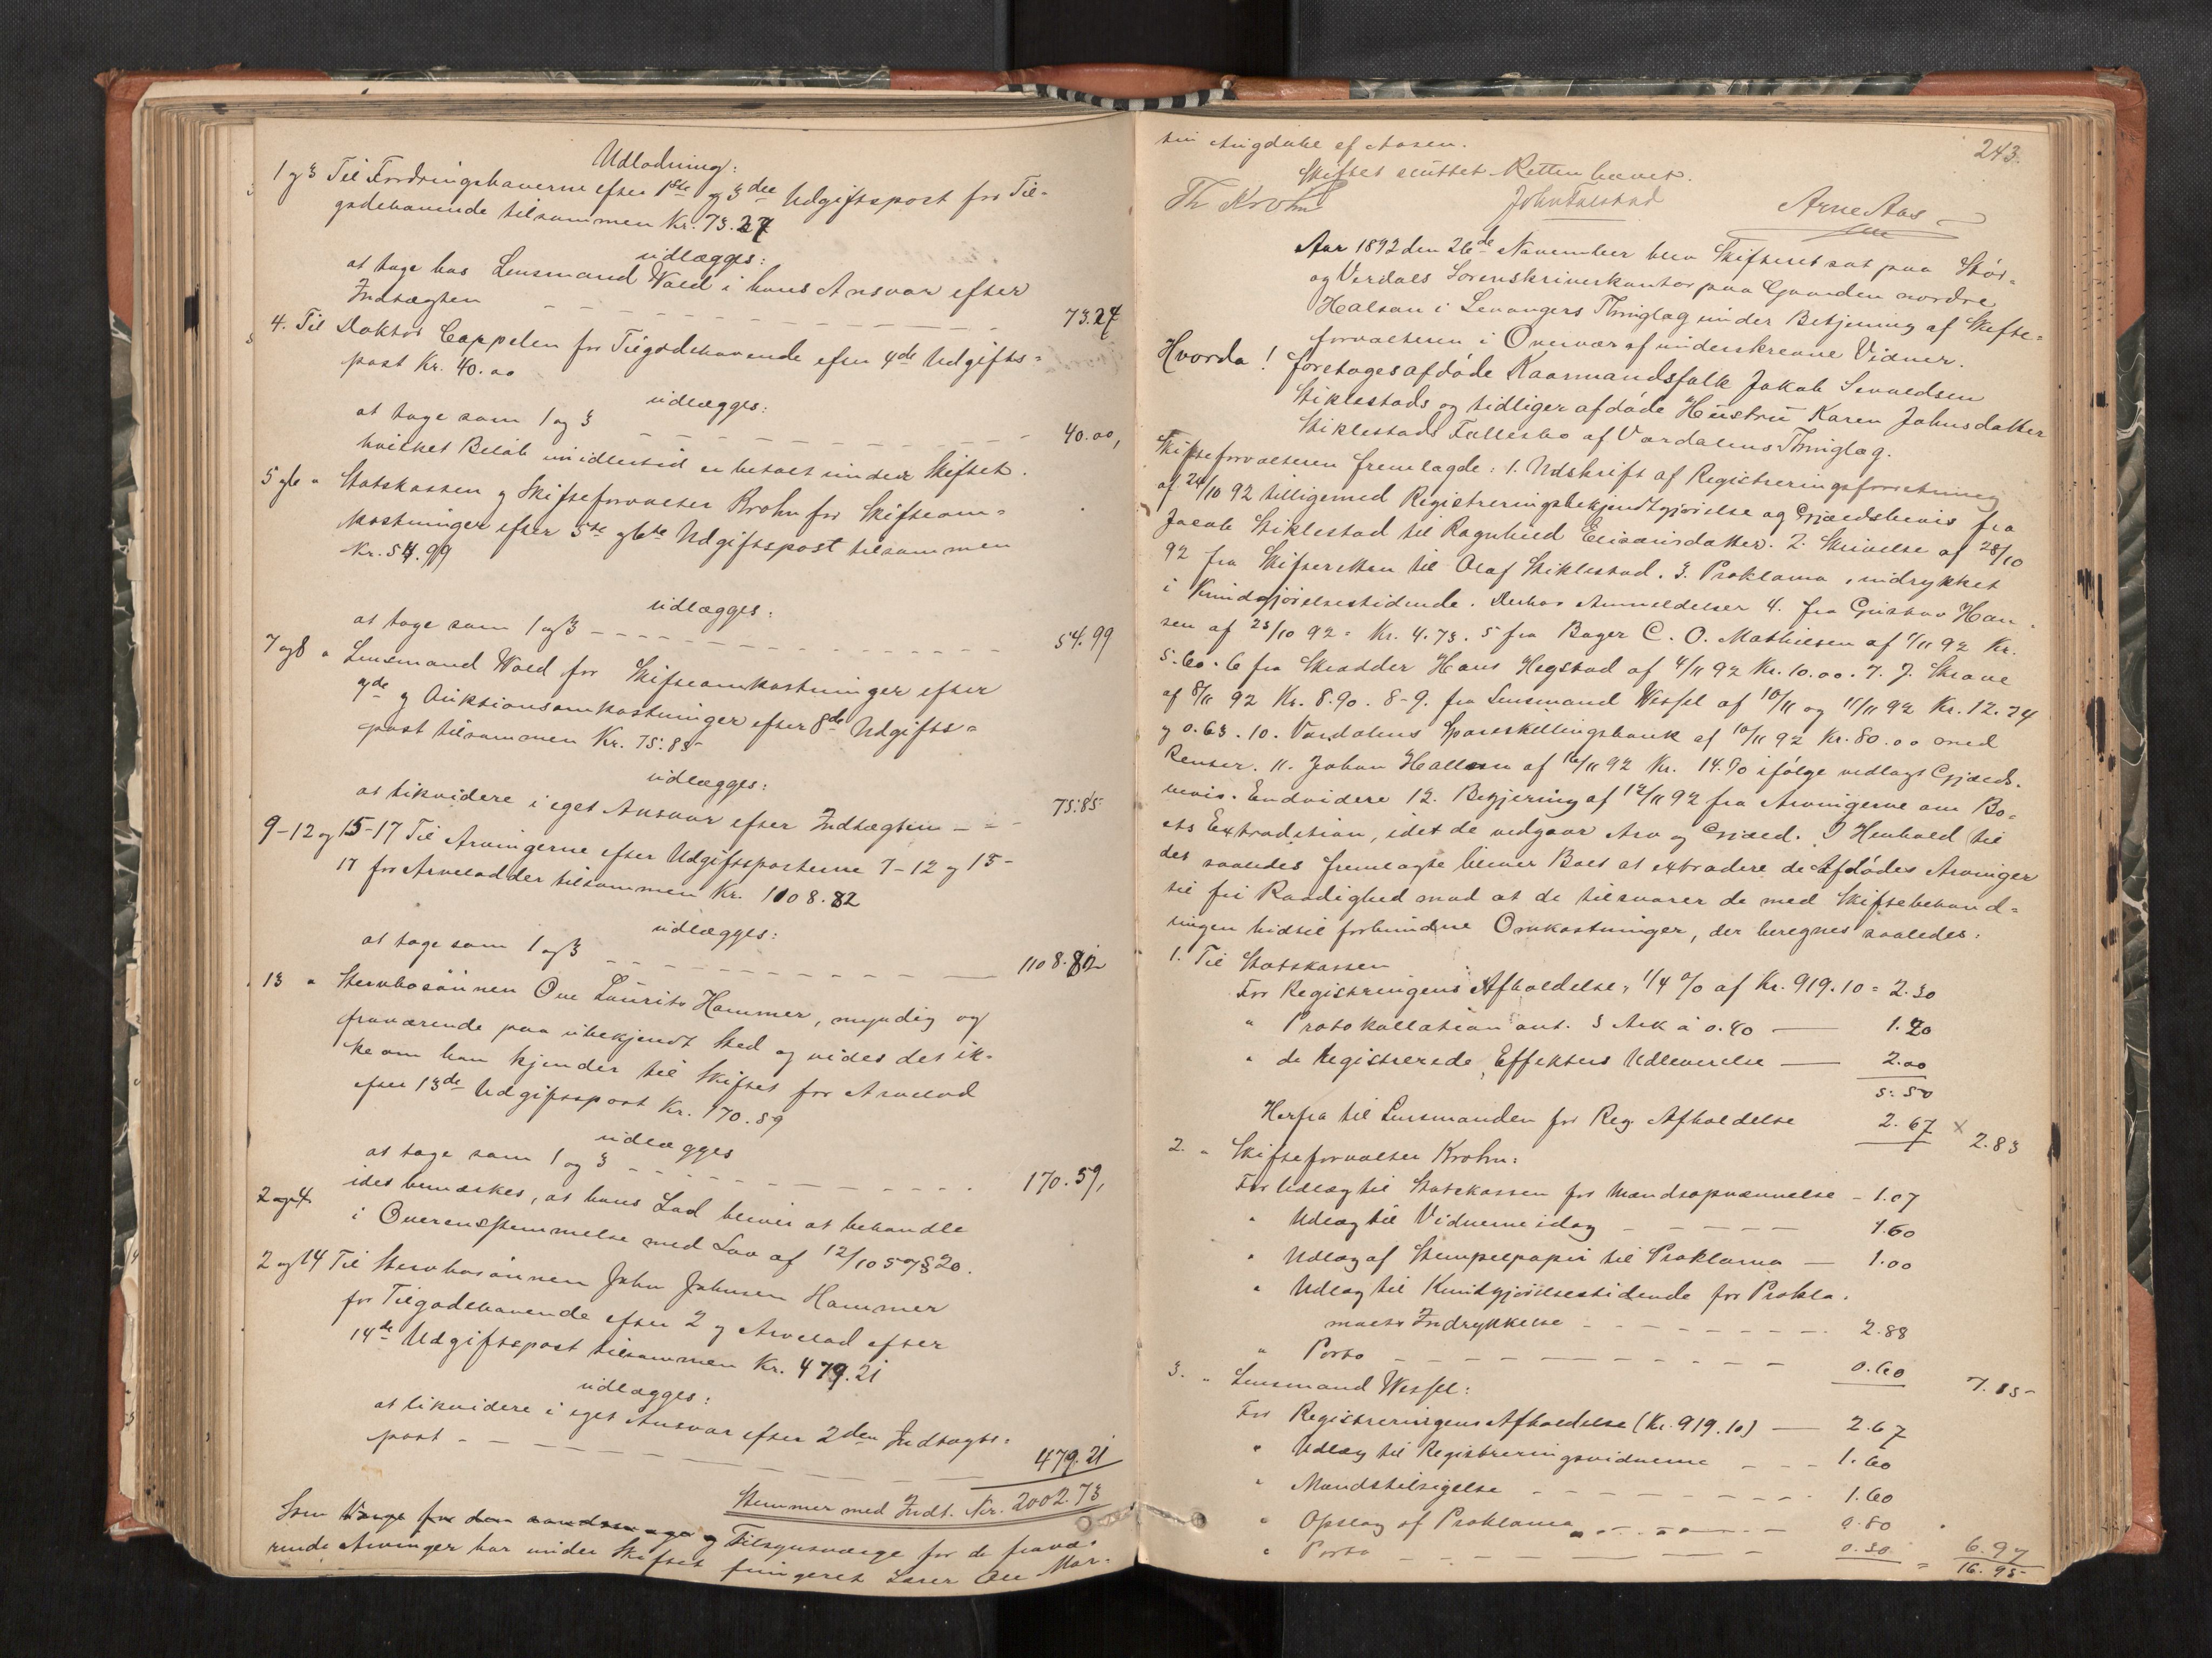 Udlodning:
1 og 3 Til Fordringshaverne efter 1ste og 3die Udgiftspost for Til-
godehavende tilsammen Kr. 73.27
udlægges:
at tage hos Lensmand Wold i hans Ansvar efter
Indtægten 73.27
4. Til Doktor Cappelen for Tilgodehavende efter 4de Udgifts-
post Kr. 40.00
udlægges:
at tage som 1 og 3 40.00,
hvilket Beløb imidlertid er betalt under Skiftet.
5 og 6 " Statskassen og Skifteforvalter Krohn for Skifteom-
kostninger efter 5te og 6te Udgiftspost tilsammen
Kr. 54.99
udlægges:
at tage som 1 og 3 54.99
7 og 8 " Lensmand Wold for Skifteomkostninger efter
7de og Auktionsomkostninger efter 8de Udgifts-
post tilsammen Kr. 75.85
udlægges:
at likvidere i eget Ansvar efter Indtægten 75.85
9-12 og 15-17 Til Arvingerne efter Udgiftsposterne 9-12 og 15-
17 for Arvelodder tilsammen Kr. 1108.82
udlægges:
at tage som 1 og 3 1108.82
13 " Stervbosønnen Ole Lauritz Hammer, myndig og
fraværende paa ubekjendt Sted og vides det ik-
ke om han kjender til Skiftet for Arvelod
efter 13de Udgiftspost Kr. 170.59
udlægges
at tage som 1 og 3 170.59,
ides bemærkes, at hans Lod bliver at behandle
i Overensstemmelse med Lov af 12/10 57 § 20.
2 og 14 Til Stervbosønnen John Johnsen Hammer
for Tilgodehavende efter 2 og Arvelod efter
14de Udgiftspost tilsammen Kr. 479.21
udlægges:
at likvidere i eget Ansvar efter 2den Indtægts-
post 479.21
Stemmer med Indt. Kr. 2002.73
Som Værge for den og Tilsynsværge for de fravæ-
rende Arvinger har under Skiftet fungeret Lærer Ole Mar-
243.
tin Aagdahl af Aasen.
Skiftet sluttet. Retten hævet.
Th Krohn John Tolstad Arne Aas
Aar 1892 den 26de November blev Skifteret sat paa Stør-
og Verdals Sorenskriverkontor paa Gaarden nordre
Halsan i Levangers Thinglag under Betjening af Skifte-
forvalteren i Overvær af underskrevne Vidner.
Hvorda! foretoges afdøde Kaarmandsfolk Jakob Sevaldsen
Stiklestads og tidliger afdøde Hustru Karen Johnsdatter
Stiklestads Fællesbo af Værdalens Thinglag.
Skifteforvalteren fremlagde: 1. Udskrift af Registreringsforretning
af 24/10 92 tilligemed Registreringsbekjendtgjørelse og Gjældsbevis fra
Jacob Stiklestad til Ragnhild Eliasdatter. 2. Skrivelse af 28/10
92 fra Skifteretten til Olaf Stiklestad. 3. Proklama, indrykket
i Kundgjørelsestidende. Derhos Anmeldelser 4. fra Gustav Han-
sen af 23/10 92 = Kr. 4.73. 5 fra Bager C. O. Mathiesen af 1/11 92 Kr.
5.60. 6 fra Skrædder Hans Hegstad af 4/11 92 Kr. 10.00. 7. J. Skrove
af 8/11 92 Kr. 8.90. 8-9. fra Lensmand Wessel af 10/11 og 11/11 92 Kr. 12.74
og 0.63. 10. Værdalens Spareskillingsbank af 10/11 92 Kr. 80.00 med
Renter. 11. Johan Hallem af 16/11 92 Kr. 14.70 ifølge vedlagt Gjælds-
bevis. Endvidere 12. Begjering af 12/11 92 fra Arvingerne om Bo-
ets Extradition, idet de vedgaar Arv og Gjæld. I Henhold til
det saaledes fremlagte bliver Boet at extradere de Afdødes Arvinger
til fri Raadighed mod at de tilsvarer de med Skiftebehand-
lingen hidtil forbundne Omkostninger, der beregnes saaledes:
1. Til Statskassen
For Registreringens Afholdelse, 1/4 % af Kr. 919.10 = 2.30
" Protokollation ant. 3 Ark à 0.40 1.20
" de Registrerede Effekters Udleverelse 2.00
5.50
Herfra til Lensmanden for Reg. Afholdelse 2.67 × 2.83
2. " Skifteforvalter Krohn:
For Udlæg til Statskassen for Mandsopnævnelse - 1.07
" Udlæg til Vidnerne idag 1.60
" Udlæg af Stempelpapir til Proklama 1.00
" Udlæg til Kundgjørelsestidende for Prokla-
maets Indrykkelse 2.88
" Porto 0.60 7.15
3. " Lensmand Wessel:
For Registreringens Afholdelse (Kr. 919.10) 2.67
" Udlæg til Registreringsvidnerne 1.60
" Mandstilsigelse 1.60
" Opslag af Proklama 0.80
" Porto 0.30 = 6.97
16.95